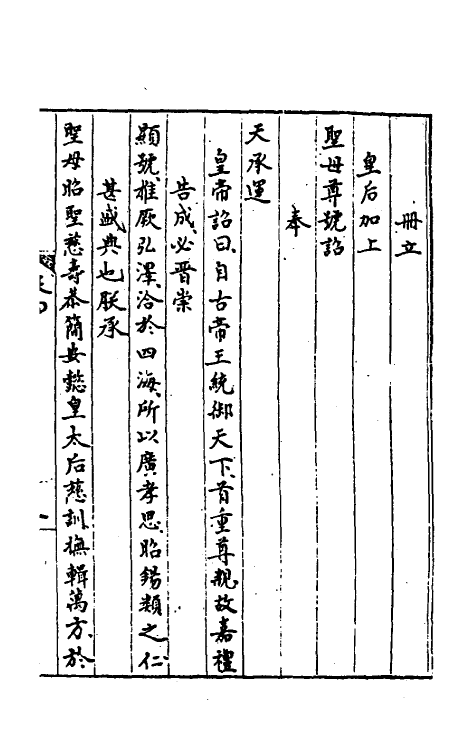 冊立
皇后加上
聖母尊號詔
奉
天承運
皇帝詔曰自古帝王統御天下首重尊親故嘉禮
告成必晉崇
顯號推厥弘澤洽於四海所以廣孝思昭錫類之仁
甚盛典也朕承
聖母昭聖慈壽恭簡安懿皇太后慈訓撫輯萬方於